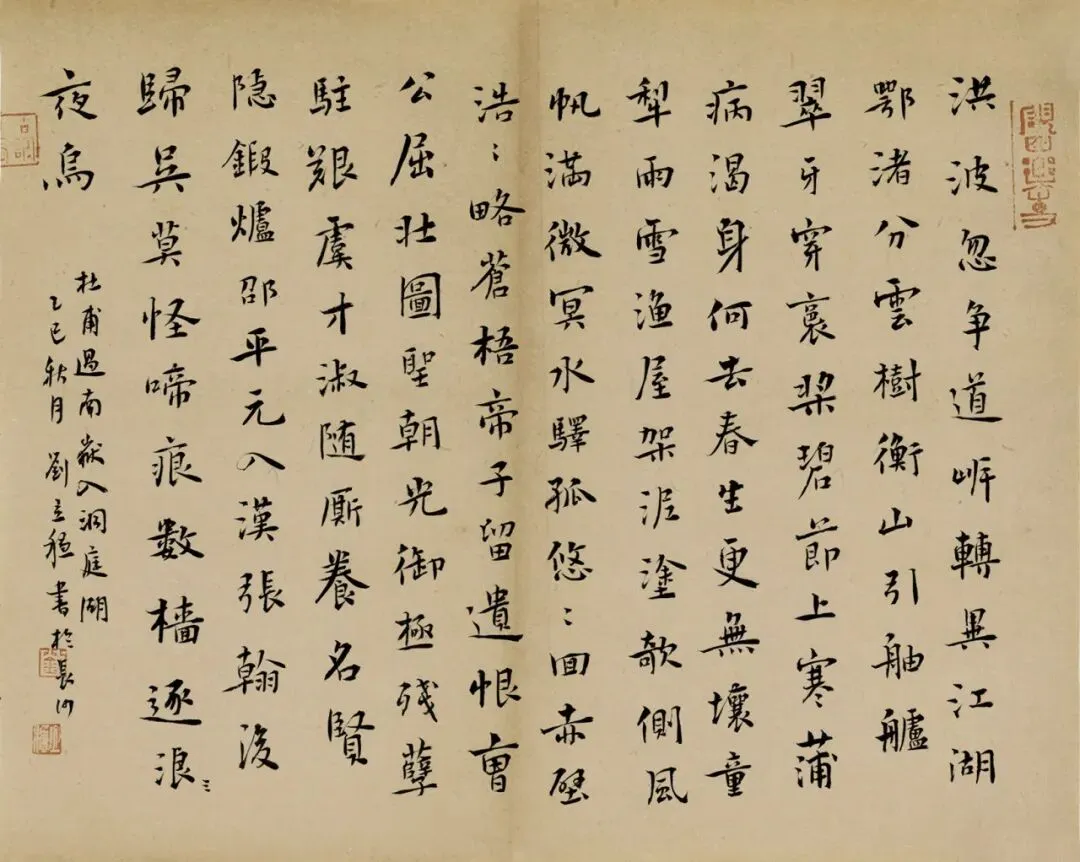 洪波忽争道岍轉異江湖
鄂渚分雲樹衡山引舳艫
翠牙穿裛槳碧節上寒蒲
病渴身何去春生更無壤童
犁雨雪漁屋架泥塗欹側風
帆滿微冥水驛孤悠〻回赤壁
浩〻略蒼梧帝子留遺恨曹
公屈壯圖聖朝光御極殘孽
駐艱虞才淑随廝養名賢
隐鍛爐邵平元入漢張翰後
歸吳莫怪啼痕數檣逐浪〻
夜烏
杜甫過南嶽入洞庭湖
乙巳秋月劉立書於長沙